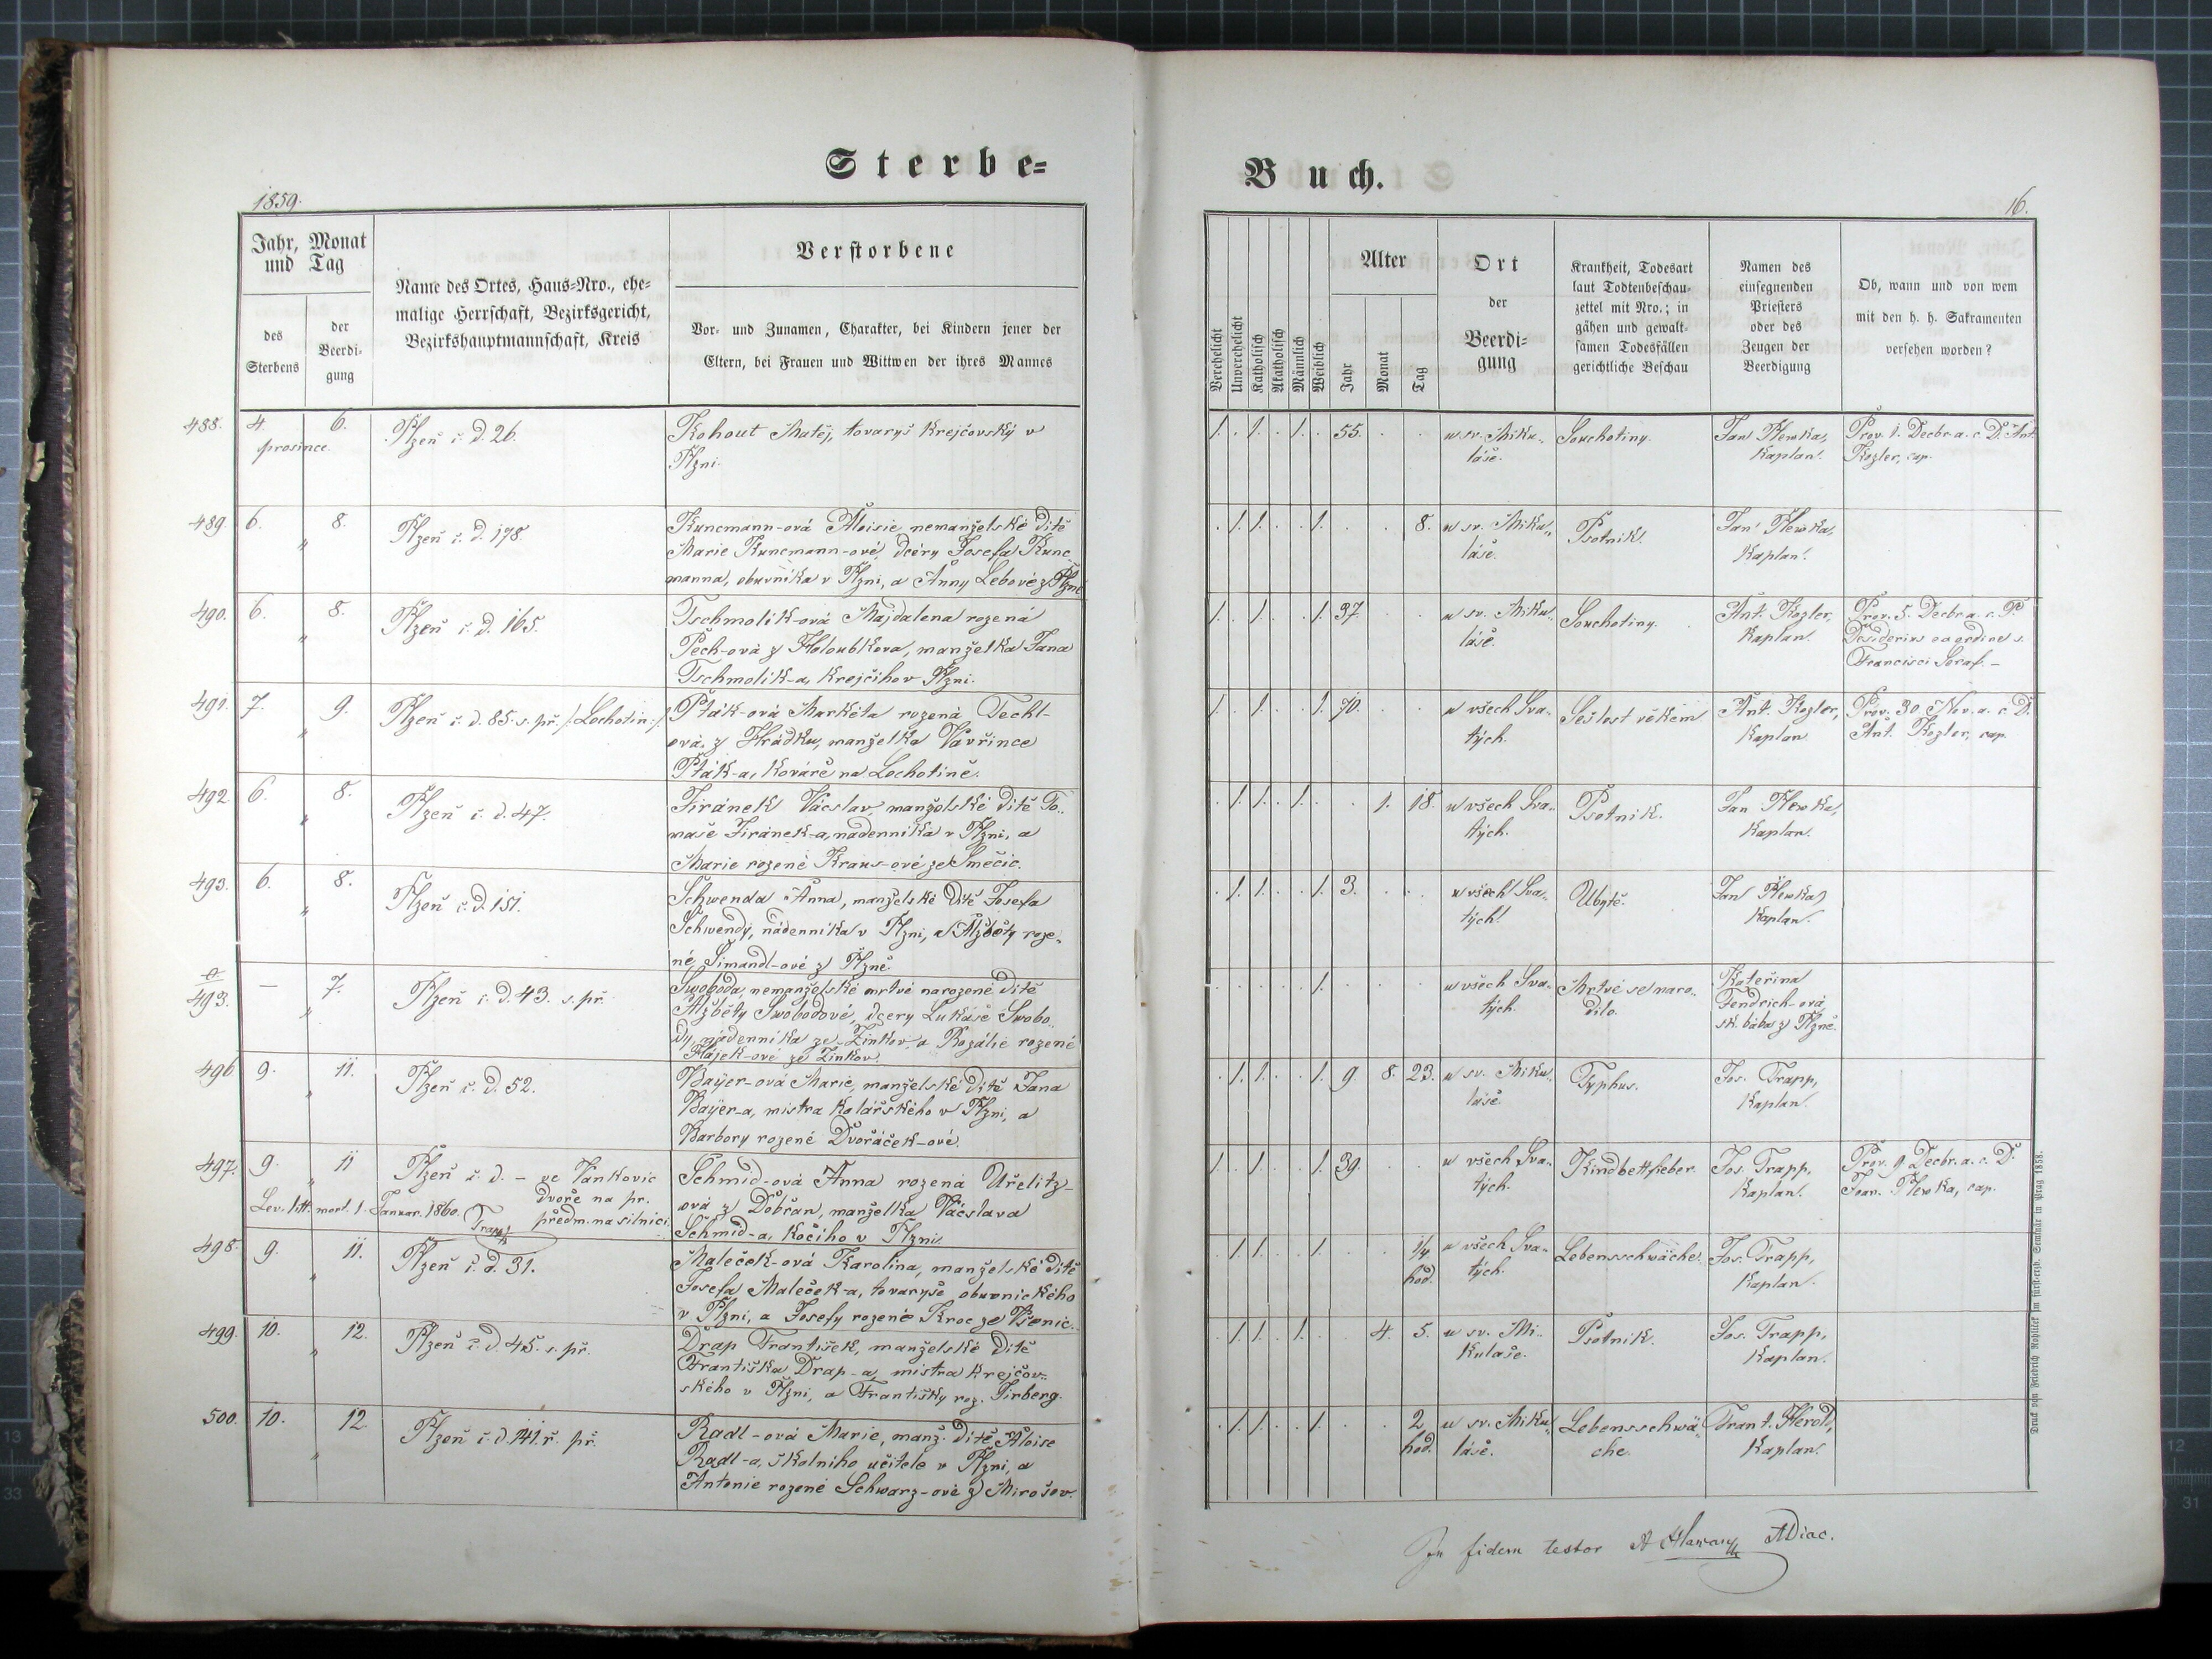 Sterbe=
1859.
Jahr, Monat
und Tag
des
Sterbens
der
Beerdi-
gung
Name des Ortes, Haus=Nro., ehe-
malige Herrschaft, Bezirksgericht,
Bezirkshauptmannschaft, Kreis
Verstorbene
Vor- und Zunamen, Charakter, bei Kindern jener der
Eltern, bei Frauen und Wittwen der ihres Mannes
488. 4. 6. Plzeň č. d. 26. Kohout Matěj, tovaryš krejčovský v
prosince.
Plzni.
489. 6. „ 8. Plzeň č. d. 178. Kuncmann-ová Aloisie, nemanželské dítě
Marie Kuncmann-ové, dcery Josefa Kunc
manna, obuvníka v Plzni, a Anny Lebové z Plzně
490. 6. „ 8. Plzeň č. d. 165. Tschmolik-ová Majdalena rozená
Pech-ová z Holoubkova, manželka Jana
Tschmolik-a, krejčího v Plzni.
491. 7. „ 9. Plzeň č. d. 85. s. př. /: Lochotín :/ Pták-ová Markéta rozená Techl-
ová, z Hrádku, manželka Vavřince
Pták-a, kováře na Lochotíně.
492. 6. „ 8. Plzeň č. d. 47. Jiránek Václav, manželské dítě To„
maše Jiránek-a, nádenníka v Plzni, a
Marie rozené Kraus-ové ze Smečic.
493. 6. „ 8. Plzeň č. d. 151. Schwenda Anna, manželské dítě Josefa
Schwendy, nádenníka v Plzni, a Alžběty roze„
né Šimandl-ové z Plzně.
a/493. — „ 7. Plzeň č. d. 43. s. př. Swoboda, nemanželské mrtvě narozené dítě
Alžběty Swobodové, dcery Lukáše Swobo„
dy, nádenníka ze Žinkov, a Rozálie rozené
Hájek-ové ze Žinkov.
496 9. „ 11. Plzeň č. d. 52. Bayer-ová Marie, manželské dítě Jana
Bayer-a, mistra kolářského v Plzni, a
Barbory rozené Dvořáček-ové.
497. 9. „ 11 Plzeň č. d. — ve Vankovic Schmid-ová Anna rozená Uřelitz-
dvoře na pr.
předm. na silnici.
Lev. litt. mort. 1. Januar. 1860. Trapp
ová z Dobřan, manželka Václava
Schmid-a, kočího v Plzni.
498. 9. „ 11. Plzeň č. d. 31. Maleček-ová Karolina, manželské dítě
Josefa Maleček-a, tovaryše obuvnického
v Plzni, a Josefy rozené Kroc ze Všenic.
499. 10. „ 12. Plzeň č. d. 45. s. př. Drap František, manželské dítě
Františka Drap-a, mistra krejčov„
ského v Plzni, a Františky roz. Jirberg.
500. 10. „ 12 Plzeň č. d. 141. ř. př. Radl-ová Marie, manž. dítě Aloise
Radl-a, školního učitele v Plzni, a
Antonie rozené Schwarz-ové z Mirošov.
Buch.
16.
Verehelicht
Unverehelicht
Katholisch
Akatholisch
Männlich
Weiblich
Alter
Jahr
Monat
Tag
Ort
der
Beerdi=
gung
Krankheit, Todesart
laut Todtenbeschau-
zettel mit Nro.; in
gähen und gewalt-
samen Todesfällen
gerichtliche Beschau
Namen des
einsegnenden
Priesters
oder des
Zeugen der
Beerdigung
Ob, wann und von wem
mit den h. h. Sakramenten
versehen worden?
1. . 1. . 1. . 55. . . u sv. Miku„ Souchotiny. Jan Plewka, Prov. 1. Decbr. a. c. D. Ant.
láše. Kaplan. Kozler, cap.
. 1. 1. . . 1. . . 8. u sv. Miku„ Psotník. Jan Plewka,
láše. Kaplan.
1. . 1. . . 1. 37. . . u sv. Miku„ Souchotiny. Ant. Kozler, Prov. 5. Decbr. a. c. P.
láše. Kaplan. Desiderius ex ordine s.
Francisci Seraf. —
1. . 1. . . 1. 70. . . u všech Sva„ Sešlost věkem Ant. Kozler, Prov. 30. Nov. a. c. D.
tých. Kaplan Ant. Kozler, cap.
. 1. 1. . 1. . . 1. 18. u všech Sva„ Psotník. Jan Plewka,
tých. Kaplan.
. 1. 1. . . 1. 3. . . u všech Sva„ Ubytě. Jan Plewka,
tých. Kaplan.
. . . . . 1. . . . u všech Sva„ Mrtvé se naro„ Kateřina
tých. dilo. Fendrich-ová,
zk. bába z Plzně.
. 1. 1. . . 1. 9. 8. 23. u sv. Miku„ Typhus. Jos. Trapp,
láše. Kaplan.
1. . 1. . . 1. 39. . . u všech Sva„ Kindbettfieber. Jos. Trapp, Prov. 9. Decbr. a. c. D.
tých. Kaplan. Joan. Plewka, cap.
. 1. 1. . . 1. . . 1/4 u všech Sva„ Lebensschwäche. Jos. Trapp,
hod. tých. Kaplan.
. 1. 1. . 1. . . 4. 5. u sv. Mi„ Psotník. Jos. Trapp,
kuláše. Kaplan.
. 1. 1. . . 1. . . 2 u sv. Miku„ Lebensschwä„ Frant. Herold,
hod. láše. che. Kaplan.
Druck von Friedrich Rohliček im fürst-erzb. Seminär in Prag 1858.
In fidem testor A Hlawan ADiac.